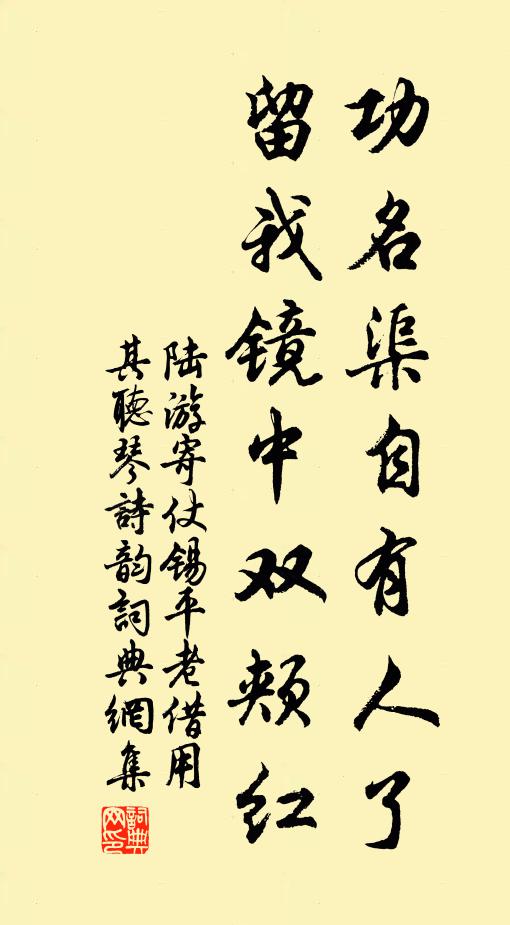 功名渠自有人了
留我镜中双颊红
陆游寄仗锡平老借用
其聽琴詩韵詞典網集
詞典网印